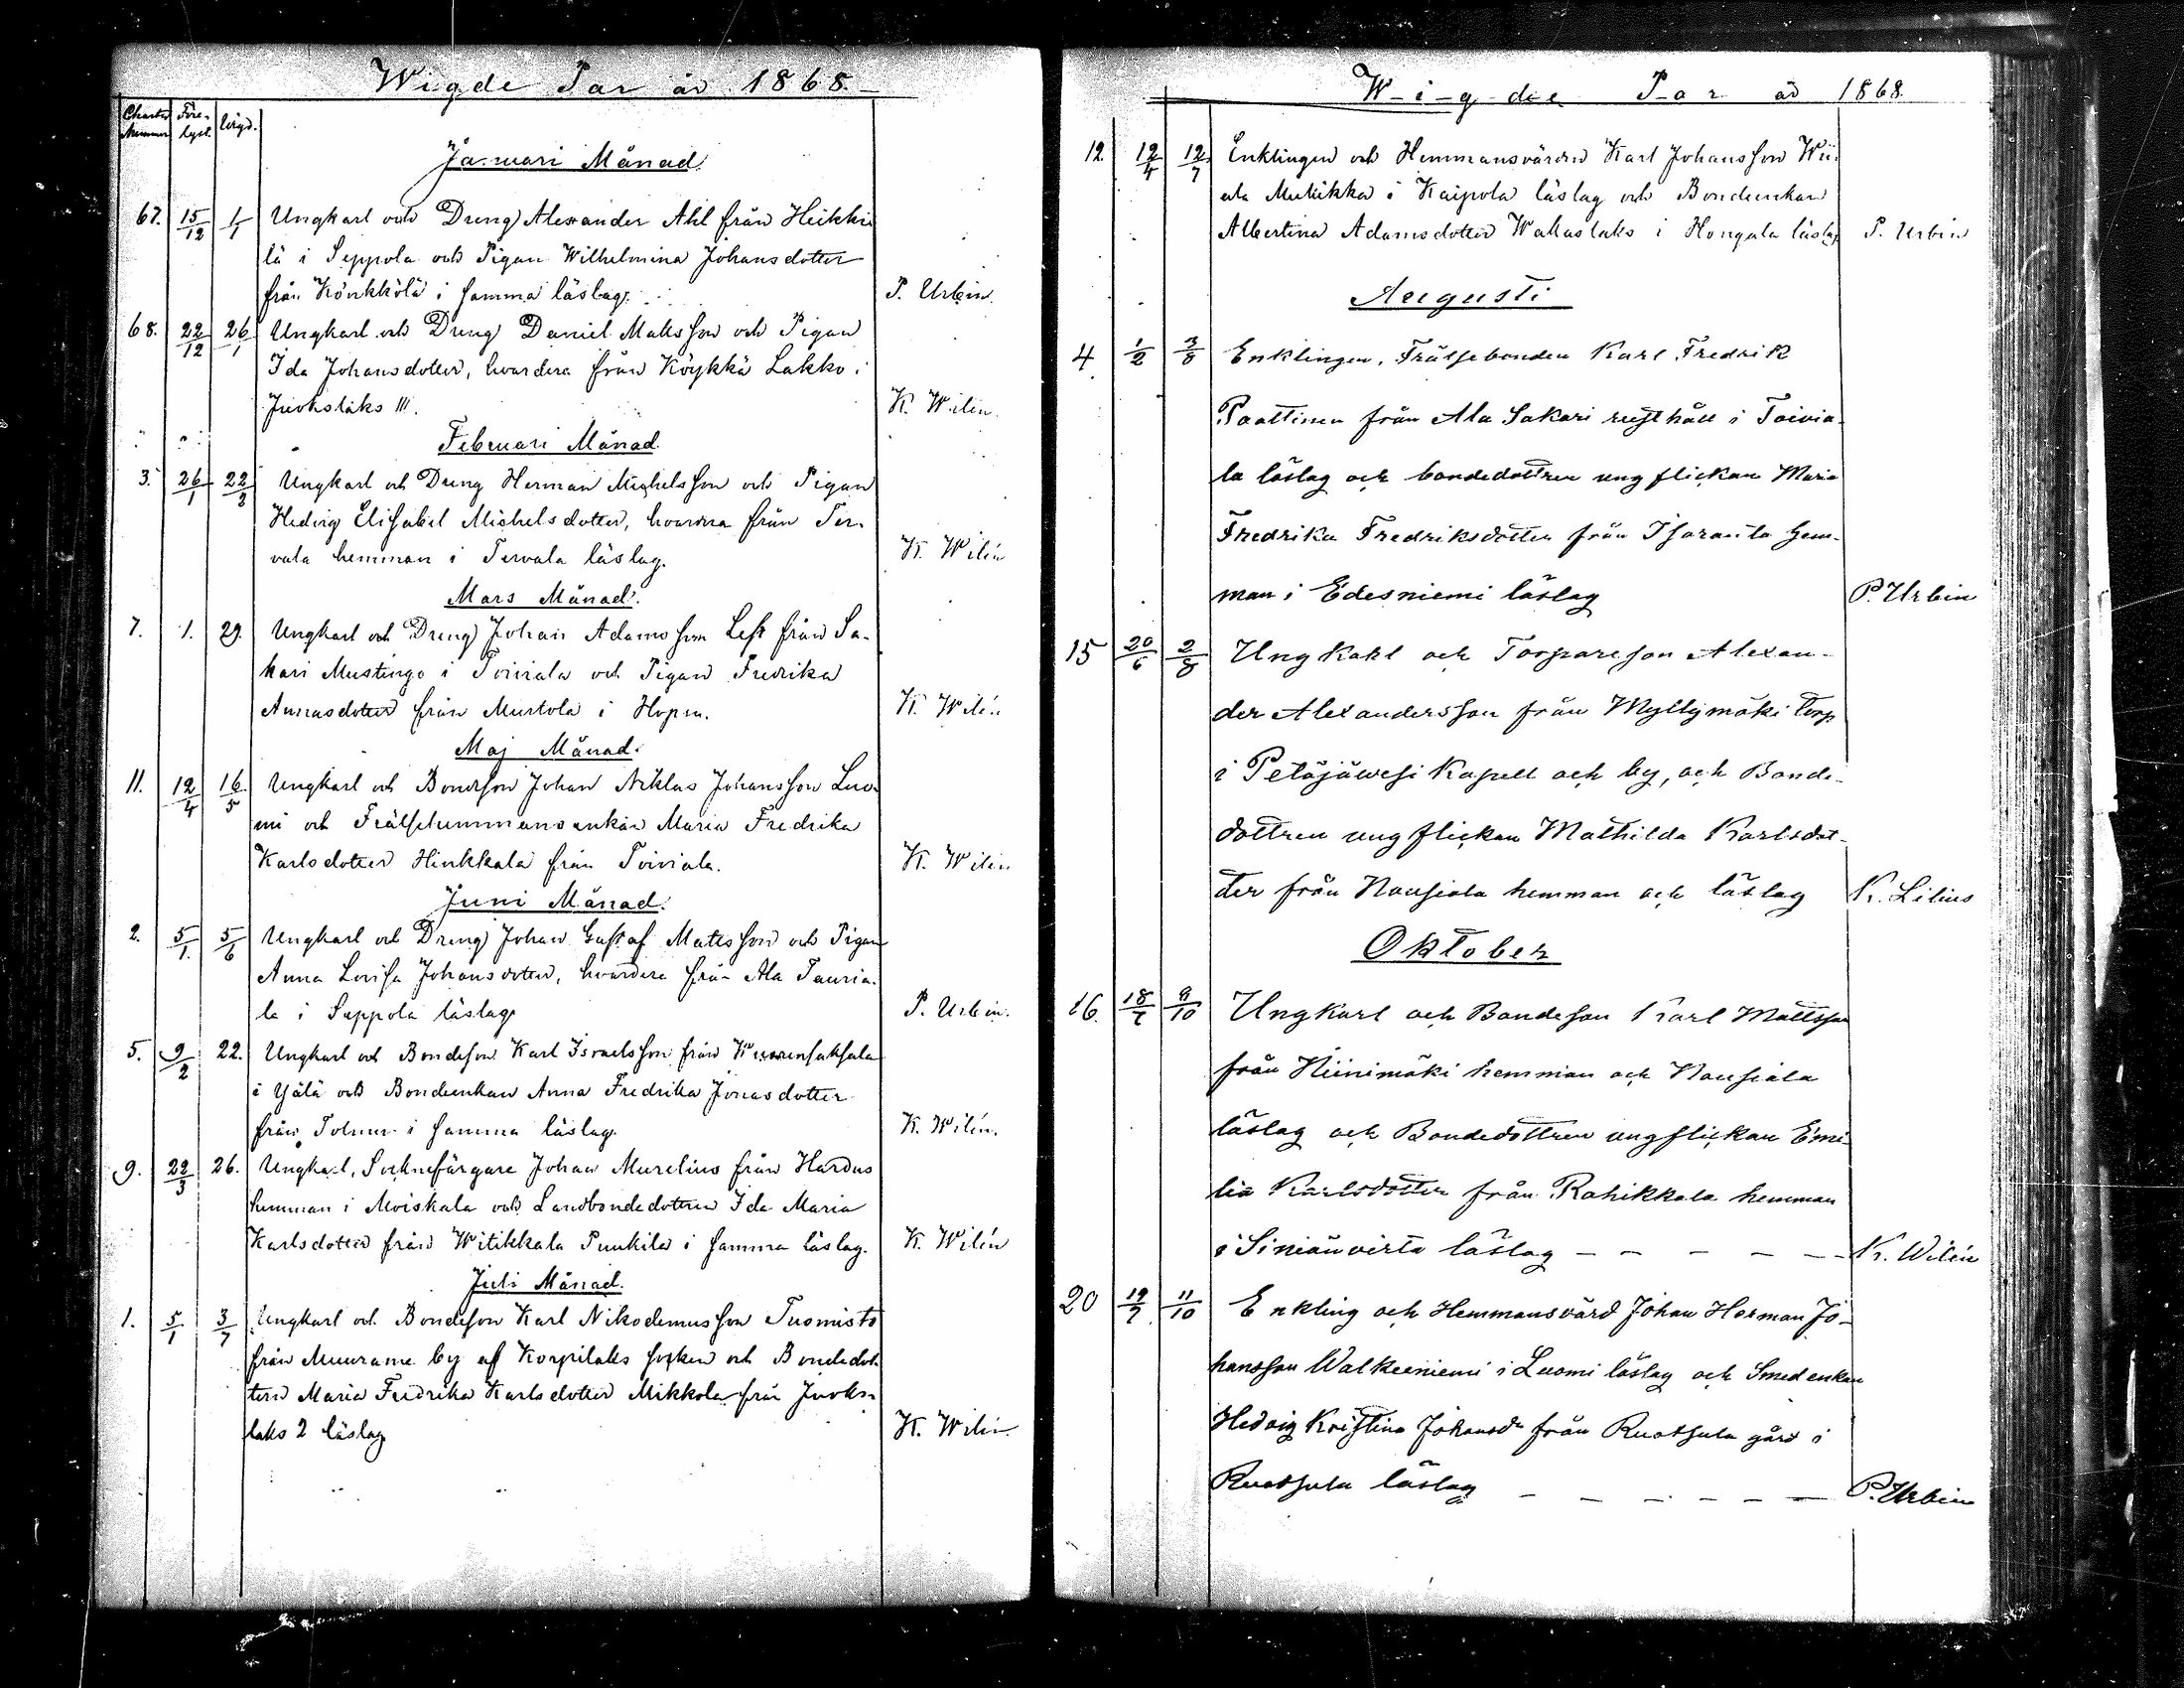 Wigde Par år 1868.
Charta Nummer Före-lyst. Vigd.
Januari Månad
67. 15/12 1/1 Ungkarl och Dreng Alexander Ahl från Heikki
lä i Seppola och Pigan Wilhelmina Johansdotter
från Könkkölä i samma läslag. P. Urbin.
68. 22/12 26/1 Ungkarl och Dreng Daniel Matsson och Pigan
Ida Johansdotter, hvardera från Köykkä Lakko i
Juokslaks III. K. Wilén.
Februari Månad.
3. 26/1 22/2 Ungkarl och Dreng Herman Michelsson och Pigan
Hedvig Elisabet Michelsdotter, hvardera från Ter-
vala hemman i Tervala läslag. K. Wilén
Mars Månad.
7. 1. 29. Ungkarl och Dreng Johan Adamsson Lest från Sa-
kari Mustingo i Toiviala och Pigan Fredrika
Annasdotter från Murtola i Hopsu. K. Wilén
Maj Månad.
11. 12/4 16/5 Ungkarl och Bondson Johan Niklas Johansson Luo-
mi och Frälsehemmansenkan Maria Fredrika
Karlsdotter Hinkkala från Toiviala. K. Wilén
Juni Månad.
2. 5/1 5/6 Ungkarl och Dreng Johan Gustaf Matsson och Pigan
Anna Lovisa Johansdotter, hvardera från Ala Tauria-
la i Seppola läslag P. Urbin.
5. 9/2 22. Ungkarl och Bondeson Karl Israelsson från
i Ylälä och Bondeenkan Anna Fredrika Jonasdotter
från i samma läslag. K. Wilén.
9. 22/3 26. Ungkarl, Socknefärgare Johan Murelius från Hardus
hemman i Moiskala och Landbondedottren Ida Maria
Karlsdotter från Witikkala Puukila i samma läslag. K. Wilén
Juli Månad.
1. 5/1 3/7 Ungkarl och Bondeson Karl Nikodemusson Tuomisto
från Muurame by af Korpilaks socken och Bondedot
tern Maria Fredrika Karlsdotter Mikkola från Juoks-
laks 2 läslag K. Wilén
Wigde Par år 1868.
12. 12/4 12/7 Enklingen och Hemmansvärden Karl Johansson Wii-
ala Mukikka i Kaipola läslag och Bondeenkan
Albertina Adamsdotter Wallaslaks i Hongala läslag P. Urbin
Augusti
4 1/2 3/8 Enklingen, Frälsebonden Karl Fredrik
Paattinen från Ala Sakari rusthåll i Toivia-
la läslag och bondedottren ung flickan Maria
Fredrika Fredriksdotter från Isaranta hem-
man i Edesniemi läslag P. Urbin
15 20/6 2/8 Ungkarl och Torpareson Alexan-
der Alexandersson från Myllymäki Torp
i Petäjäwesi Kapell och by, och Bonde-
dottren ung flickan Mathilda Karlsdot-
ter från Nausiala hemman och läslag K. Lilius
Oktober
16. 18/7 9/10 Ungkarl och Bondeson Karl Mattsson
från Hiinimäki hemman och Nausiala
läslag och Bondedottren ung flickan Emi-
lia Karlsdotter från Rahikkala hemman
i Siniänvirta läslag - - - - - K. Wilén
20 19/7 11/10 Enkling och Hemmansvärd Johan Herman Jo-
hansson Walkeeniemi i Luomi läslag och Smedenkan
Hedvig Kristina Johansdr från Ruotsula gård i
Ruotsula läslag - - - - - - P. Urbin